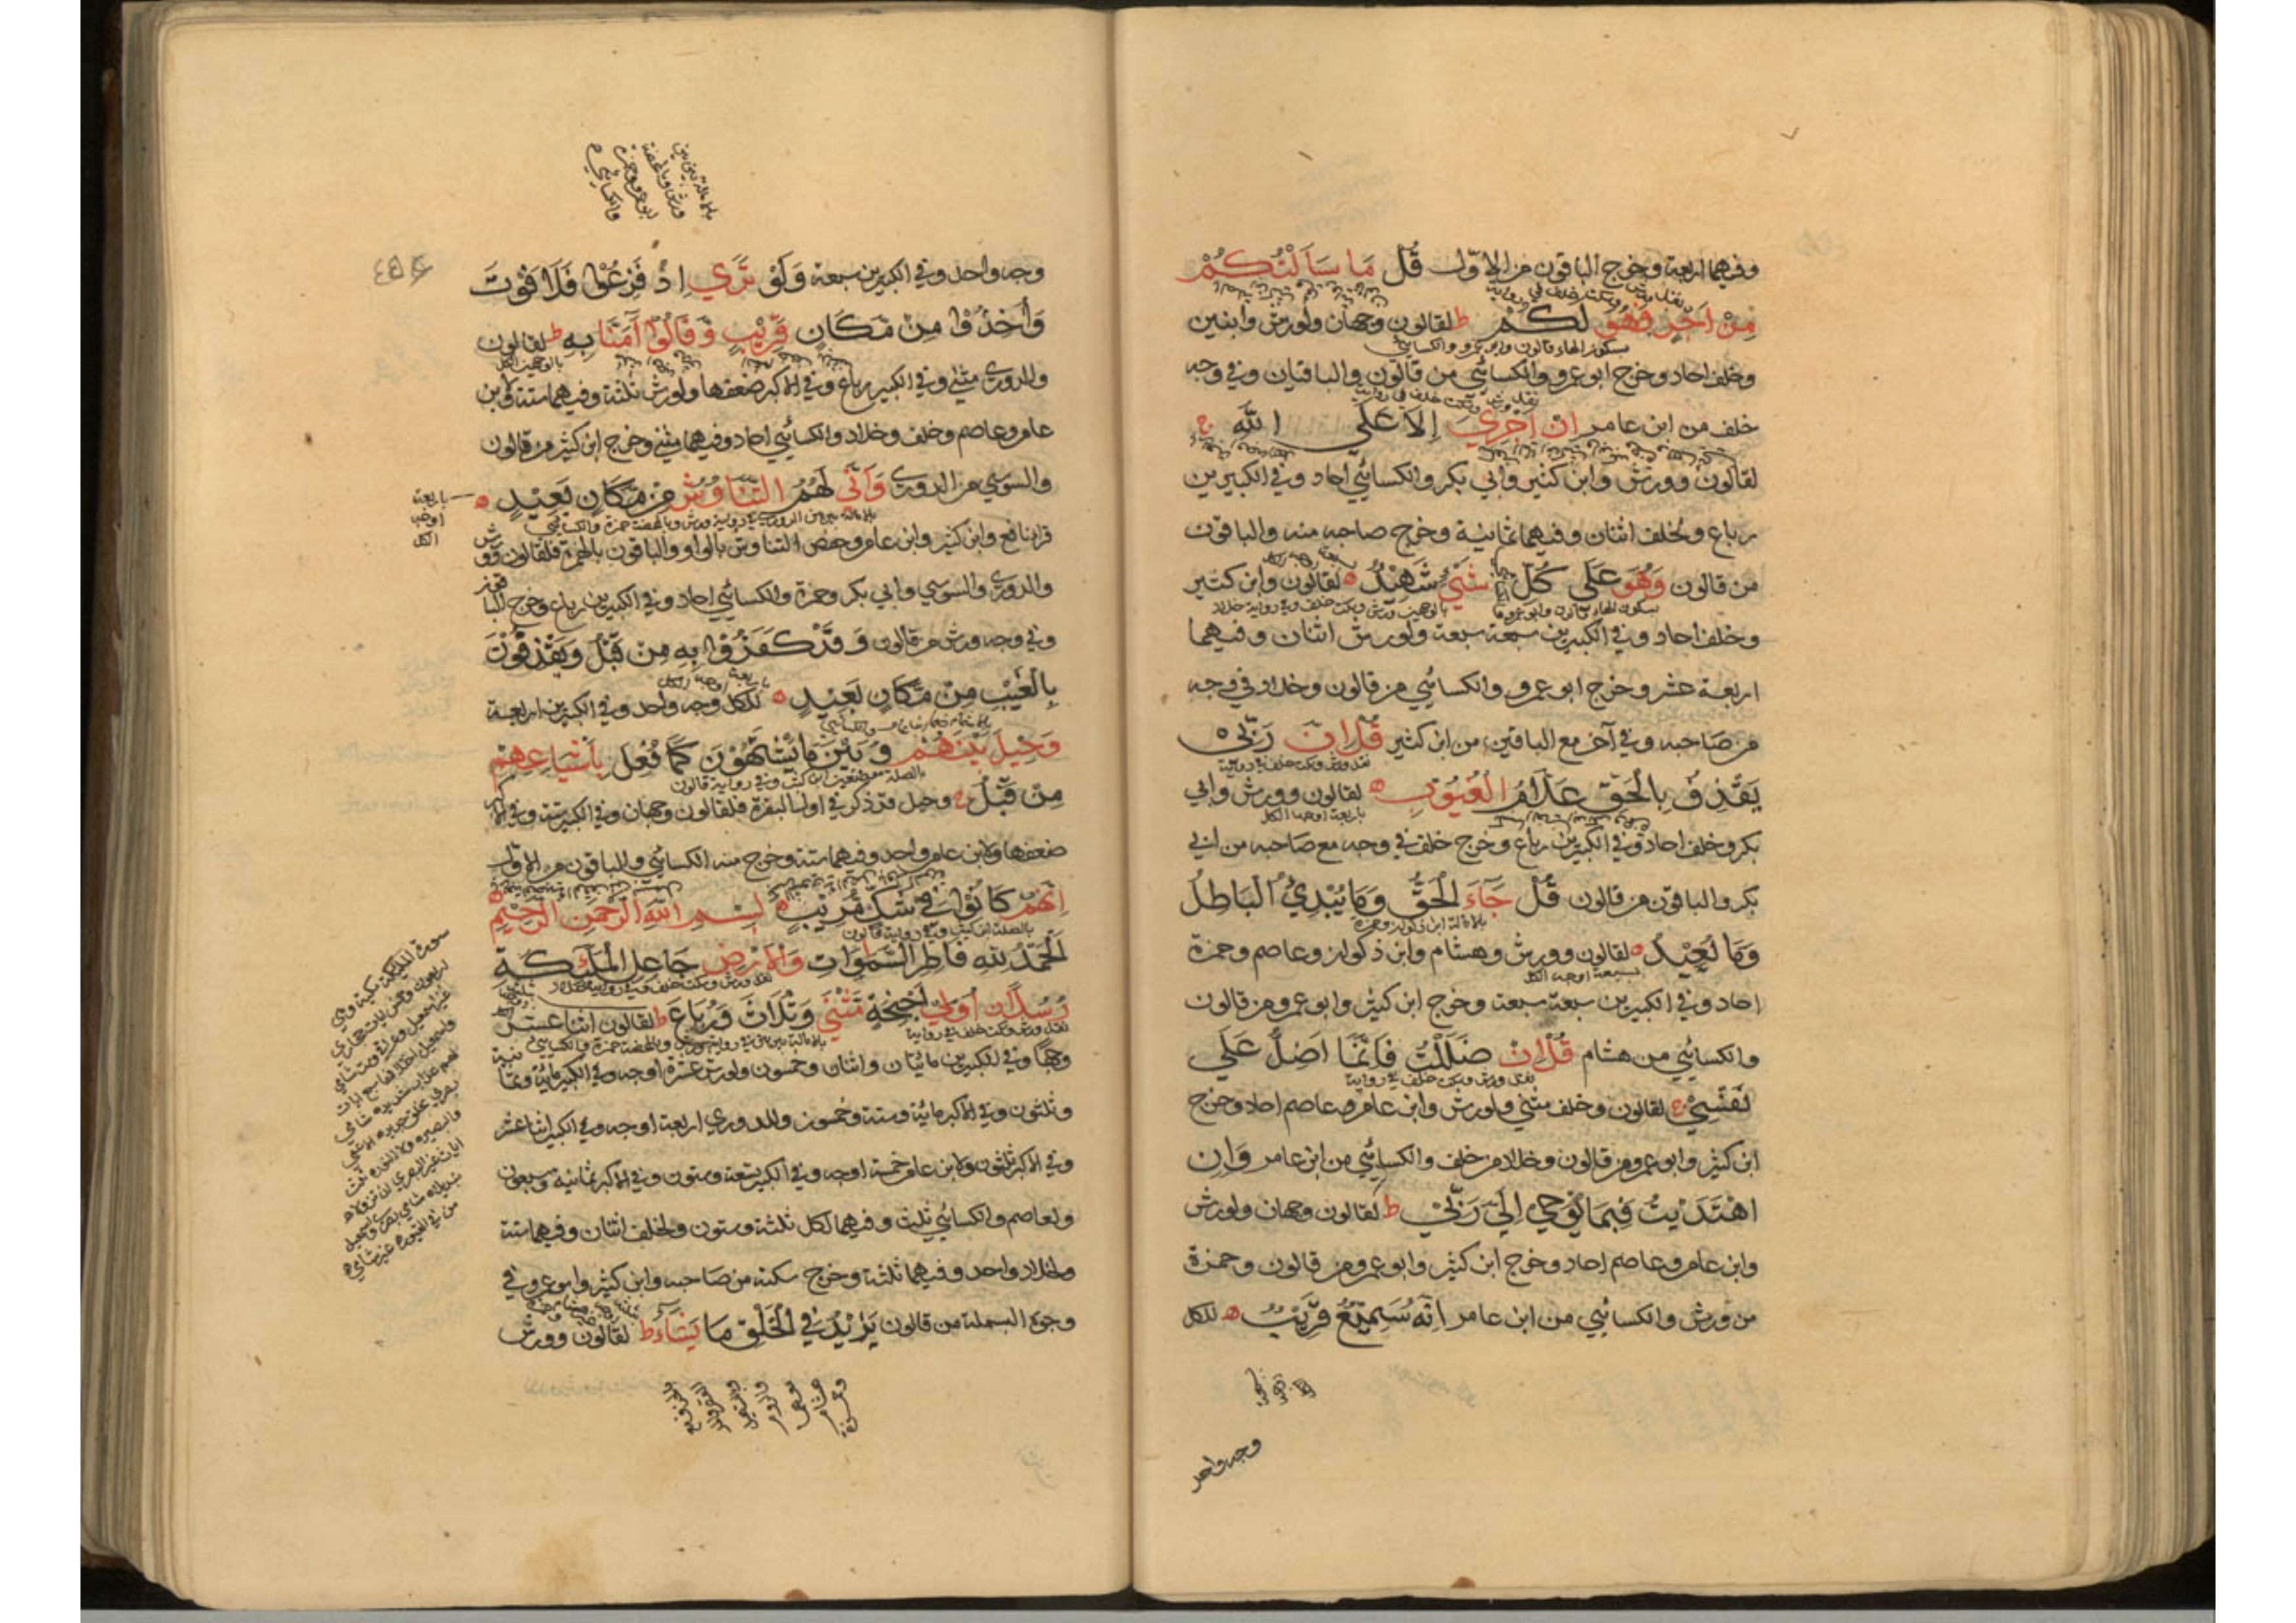 وفيهما اربعة وخرج الباقون من الاول قُلْ مَا سَاَلْتُكُمْ
مِنْ اَجْرٍ فَهُوَ لَكُمْ ط لقالون وجهان ولورش وابنين
بسكون الهاء قالون وابو عمرو والكسائي
وخلف احاد وخرج ابو عمرو والكسائي من قالون والباقيان وفي وجه
خلف من ابن عامر اِنْ اَجْرِيَ اِلَّا عَلَى اللّٰهِ ج
لقالون وورش وابن كثير وابي بكر والكسائي احاد وفي الكبيرين
رباع ولخلف اثنان وفيهما ثمانية وخرج صاحبه منه والباقون
من قالون وَهُوَ عَلَى كُلِّ شَيْءٍ شَهِيْدٌ لقالون وابن كثير
وخلف احاد وفي الكبيرين سبعة سبعة ولورش اثنان وفيهما
اربعة عشر وخرج ابو عمرو والكسائي من قالون وخلاد في وجه
من صاحبه وفي آخر مع الباقين من ابن كثير قُلْ اِنَّ رَبِّيْ
يَقْذِفُ بِالْحَقِّ عَلَّامُ الْغُيُوْبِ لقالون وورش وابي
باربعة اوجه الكل
بكر وخلف احاد وفي الكبيرين رباع وخرج خلف في وجه مع صاحبه من ابي
بكر والباقون من قالون قُلْ جَآءَ الْحَقُّ وَمَا يُبْدِئُ الْبَاطِلُ
بالامالة ابن ذكوان وحمزة
وَمَا يُعِيْدُ لقالون وورش وهشام وابن ذكوان وعاصم وحمزة
بسبعة اوجه الكل
احاد وفي الكبيرين سبعة سبعة وخرج ابن كثير وابو عمرو من قالون
والكسائي من هشام قُلْ اِنْ ضَلَلْتُ فَاِنَّمَا اَضِلُّ عَلَى
نَفْسِيْ ج لقالون وخلف مثني ولورش وابن عامر وعاصم احاد وخرج
ابن كثير وابو عمرو من قالون وخلاد من خلف والكسائي من ابن عامر وَاِنِ
اهْتَدَيْتُ فَبِمَا يُوْحِيْ اِلَيَّ رَبِّيْ ط لقالون وجهان ولورش
وابن عامر وعاصم احاد وخرج ابن كثير وابو عمرو من قالون وحمزة
من ورش والكسائي من ابن عامر اِنَّهُ سَمِيْعٌ قَرِيْبٌ للكل
وجه واحد
وجه واحد وفي الكبيرين سبعة وَلَوْ تَرَى اِذْ فَزِعُوْا فَلَا فَوْتَ
وَاُخِذُوْا مِنْ مَّكَانٍ قَرِيْبٍ وَّقَالُوْا آمَنَّا بِهِ ط لقالون
والدوري مثني وفي الكبير رباع وفي الاكبر ضعفها ولورش ثلثة وفيهما ستة ولابن
عامر وعاصم وخلف وخلاد والكسائي احاد وفيهما مثني وخرج ابن كثير من قالون
والسوسي من الدوري وَاَنّٰى لَهُمُ التَّنَاوُشُ مِنْ مَّكَانٍ بَعِيْدٍ
باربعة اوجه الكل
قرا نافع وابن كثير وابن عامر وحفص التناوش بالواو والباقون بالهمزة فلقالون وورش
والدوري والسوسي وابي بكر وحمزة والكسائي احاد وفي الكبيرين رباع وخرج الباقون
وفي وجه ورش من قالون وَقَدْ كَفَرُوْا بِهِ مِنْ قَبْلُ وَيَقْذِفُوْنَ
بِالْغَيْبِ مِنْ مَّكَانٍ بَعِيْدٍ للكل وجه واحد وفي الكبيرين اربعة
وَحِيْلَ بَيْنَهُمْ وَبَيْنَ مَا يَشْتَهُوْنَ كَمَا فُعِلَ بِاَشْيَاعِهِمْ
مِنْ قَبْلُ ج وحيل قد ذكر في اول البقرة فلقالون وجهان وفي الكبير ستة وفي الاكبر
ضعفها ولابن عامر واحد وفيهما ستة وخرج منه الكسائي والباقون من الاول
اِنَّهُمْ كَانُوْا فِي شَكٍّ مُّرِيْبٍ بِسْمِ اللّٰهِ الرَّحْمٰنِ الرَّحِيْمِ
اَلْحَمْدُ لِلّٰهِ فَاطِرِ السَّمٰوَاتِ وَالْاَرْضِ جَاعِلِ الْمَلٰٓئِكَةِ
رُسُلًا اُولِيْ اَجْنِحَةٍ مَثْنٰى وَثُلَاثَ وَرُبَاعَ ط لقالون اثنا عشر
وجها وفي الكبيرين مائتان واثنان وخمسون ولورش عشرة اوجه وفي الكبير مائة وثمانية
وثلثون وفي الاكبر مائة وستة وخمسون وللدوري اربعة اوجه وفي الكبير اثنا عشر
وفي الاكبر ثلثون ولابن عامر خمسة اوجه وفي الكبير تسعة وستون وفي الاكبر ثمانية وسبعون
ولعاصم والكسائي ثلث وفيهما لكل ثلثة وستون ولخلف اثنان وفيهما ستة
ولخلاد واحد وفيهما ثلثة وخرج سكته من صاحبه وابن كثير وابو عمرو في
وجوه البسملة من قالون يَزِيْدُ فِي الْخَلْقِ مَا يَشَآءُ ط لقالون وورش